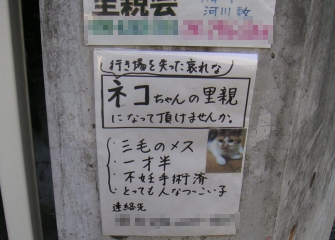 里親会
河川敷
行き場を失った哀れな
ネコちゃんの里親
になって頂けませんか。
・三毛のメス
・一才半
・不妊手術済
・とっても人なつっこい子
連絡先